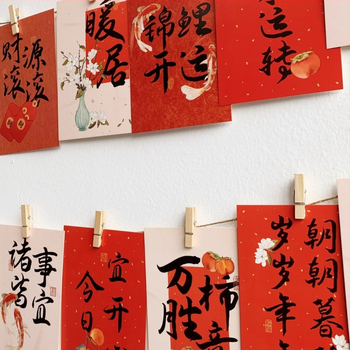 财源
滚滚
暖居
锦鲤
开运
运转
诸事
皆宜
今日
宜开
万柿
胜意
朝朝暮暮
岁岁年年